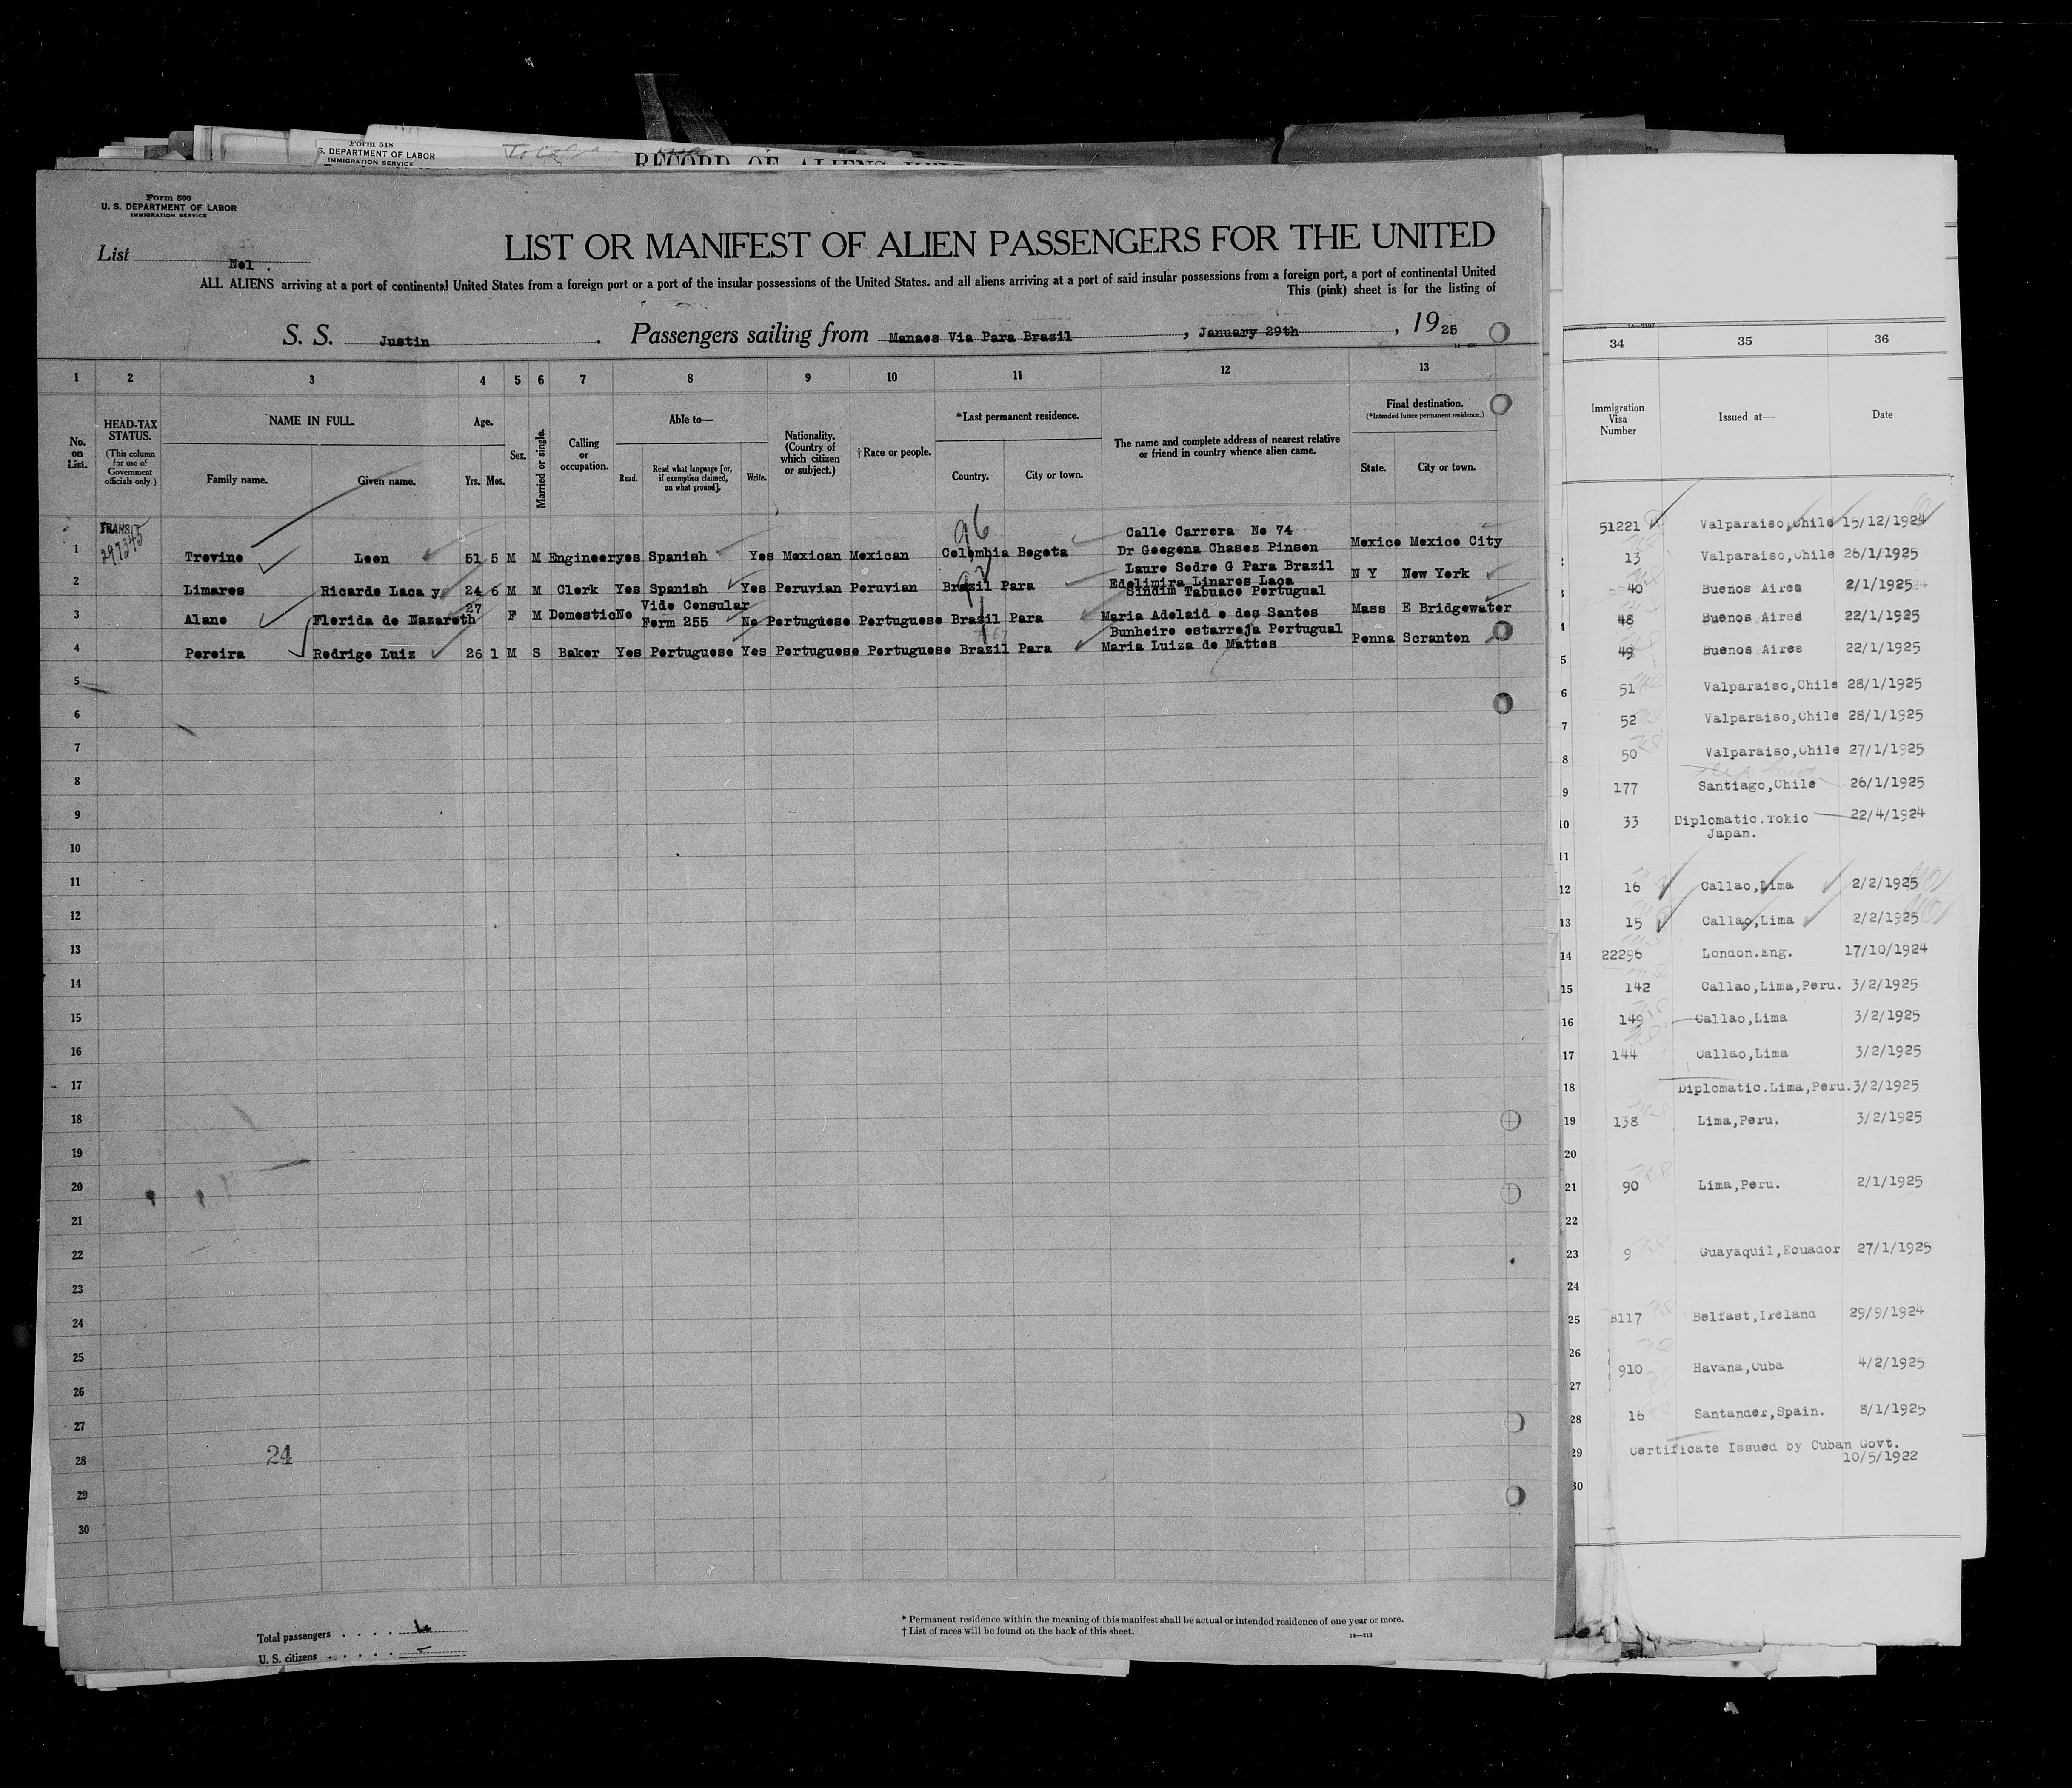 Form 518
S. DEPARTMENT OF LABOR
IMMIGRATION SERVICE
RECORD OF ALIENS
Form 500
U. S. DEPARTMENT OF LABOR
IMMIGRATION SERVICE
List No1.
LIST OR MANIFEST OF ALIEN PASSENGERS FOR THE UNITED
ALL ALIENS arriving at a port of continental United States from a foreign port or a port of the insular possessions of the United States. and all aliens arriving at a port of said insular possessions from a foreign port, a port of continental United
This (pink) sheet is for the listing of
S. S. Justin. Passengers sailing from Manaos Via Para Brazil, January 29th, 1925
1 2 3 4 5 6 7 8 9 10 11 12 13
No. on List.
HEAD-TAX STATUS.
(This column for use of Government officials only.)
NAME IN FULL.
Family name. Given name.
Age.
Yrs. Mos.
Sex.
Married or single.
Calling or occupation.
Able to—
Read. Read what language [or, if exemption claimed, on what ground]. Write.
Nationality. (Country of which citizen or subject.)
†Race or people.
*Last permanent residence.
Country. City or town.
The name and complete address of nearest relative or friend in country whence alien came.
Final destination.
(*Intended future permanent residence.)
State. City or town.
TRANSIT
297345
96
Calle Carrera No 74
1 Trevino Leon 51 5 M M Engineer yes Spanish Yes Mexican Mexican Colombia Bogota Dr Goegena Chasez Pinson Mexico Mexico City
Lauro Sodre G Para Brazil
2 Limares Ricardo Laca y 24 6 M M Clerk Yes Spanish Yes Peruvian Peruvian Brazil Para Edelimira Linares Laca N Y New York
Sindim Tabuaco Portugual
3 Alano Florida de Nazareth 27 F M Domestic No Vide Consular Form 255 No Portuguese Portuguese Brazil Para Maria Adelaid e dos Santos Mass E Bridgewater
Bunheiro estarreja Portugual
4 Pereira Rodrigo Luiz 26 1 M S Baker Yes Portuguese Yes Portuguese Portuguese Brazil Para Maria Luiza de Mattos Penna Scranton
5
6
7
8
9
10
11
12
13
14
15
16
17
18
19
20
21
22
23
24
25
26
27
28 24
29
30
Total passengers 4
U. S. citizens -
* Permanent residence within the meaning of this manifest shall be actual or intended residence of one year or more.
† List of races will be found on the back of this sheet.
14—213
34 35 36
Immigration Visa Number Issued at— Date
51221 Valparaiso,Chile 15/12/1924
13 Valparaiso,Chile 26/1/1925
3 40 Buenos Aires 2/1/1925
4 48 Buenos Aires 22/1/1925
5 49 Buenos Aires 22/1/1925
6 51 Valparaiso,Chile 28/1/1925
7 52 Valparaiso,Chile 28/1/1925
8 50 Valparaiso,Chile 27/1/1925
9 177 Santiago,Chile 26/1/1925
10 33 Diplomatic.Tokio 22/4/1924
Japan.
11
12 16 Callao,Lima 2/2/1925
13 15 Callao,Lima 2/2/1925
14 22296 London.Eng. 17/10/1924
15 142 Callao,Lima,Peru. 3/2/1925
16 149 Callao,Lima 3/2/1925
17 144 Callao,Lima 3/2/1925
18 Diplomatic.Lima,Peru. 3/2/1925
19 138 Lima,Peru. 3/2/1925
20
21 90 Lima,Peru. 2/1/1925
22
23 9 Guayaquil,Ecuador 27/1/1925
24
25 B117 Belfast,Ireland 29/9/1924
26
910 Havana,Cuba 4/2/1925
27
28 16 Santander,Spain. 8/1/1925
29 Certificate Issued by Cuban Govt.
10/5/1922
30